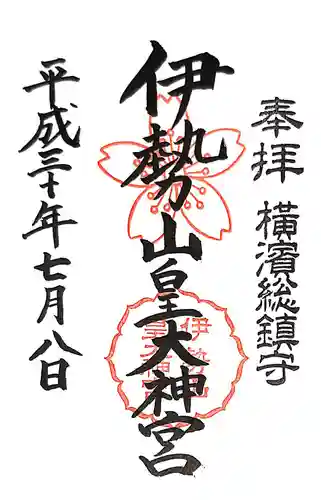 奉拝 横濱総鎮守
伊勢山皇大神宮
平成三十年七月八日
伊勢山
皇大神宮